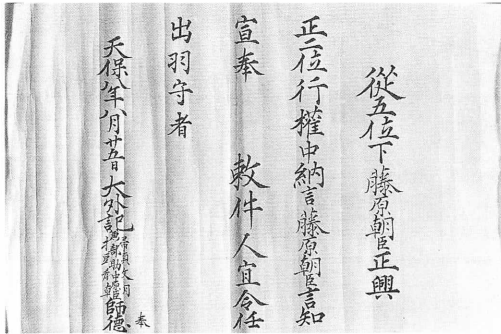 從五位下藤原朝臣正興
正二位行權中納言藤原朝臣言知
宣奉　　敕件人宜令任
出羽守者
天保八年八月廿五日大外記中原朝臣師德奉